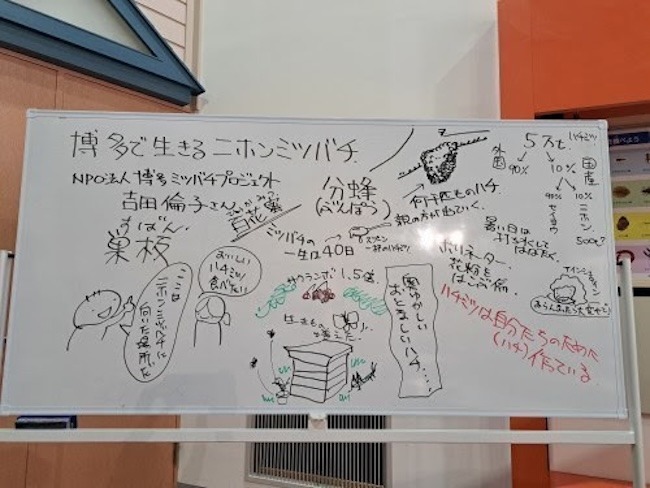 博多で生きるニホンミツバチ
NPO法人 博多ミツバチプロジェクト
吉田倫子さん
すばん
巣板
百花蜜
分蜂
(ぶんぽう)
何千匹ものハチ
親の方が出ていく。
ミツバチの
一生は40日
スプーン
一杯のハチミツ
サクランボ 1.5倍
生きもの
増えた。
おいしい
ハチミツ
食べたい!
ここは
ニホンミツバチに
向いた場所だ
奥ゆかしい
おとなしいハチ....
5万t
ハチミツ
外国
90%
10%
国産
90%
セイヨウ
10%
ニホン
500t?
暑い日は
ポリネーター
花粉を
はこぶ係
アインシュタイン
ハチミツは自分たちのために
(ハチ)作っている。